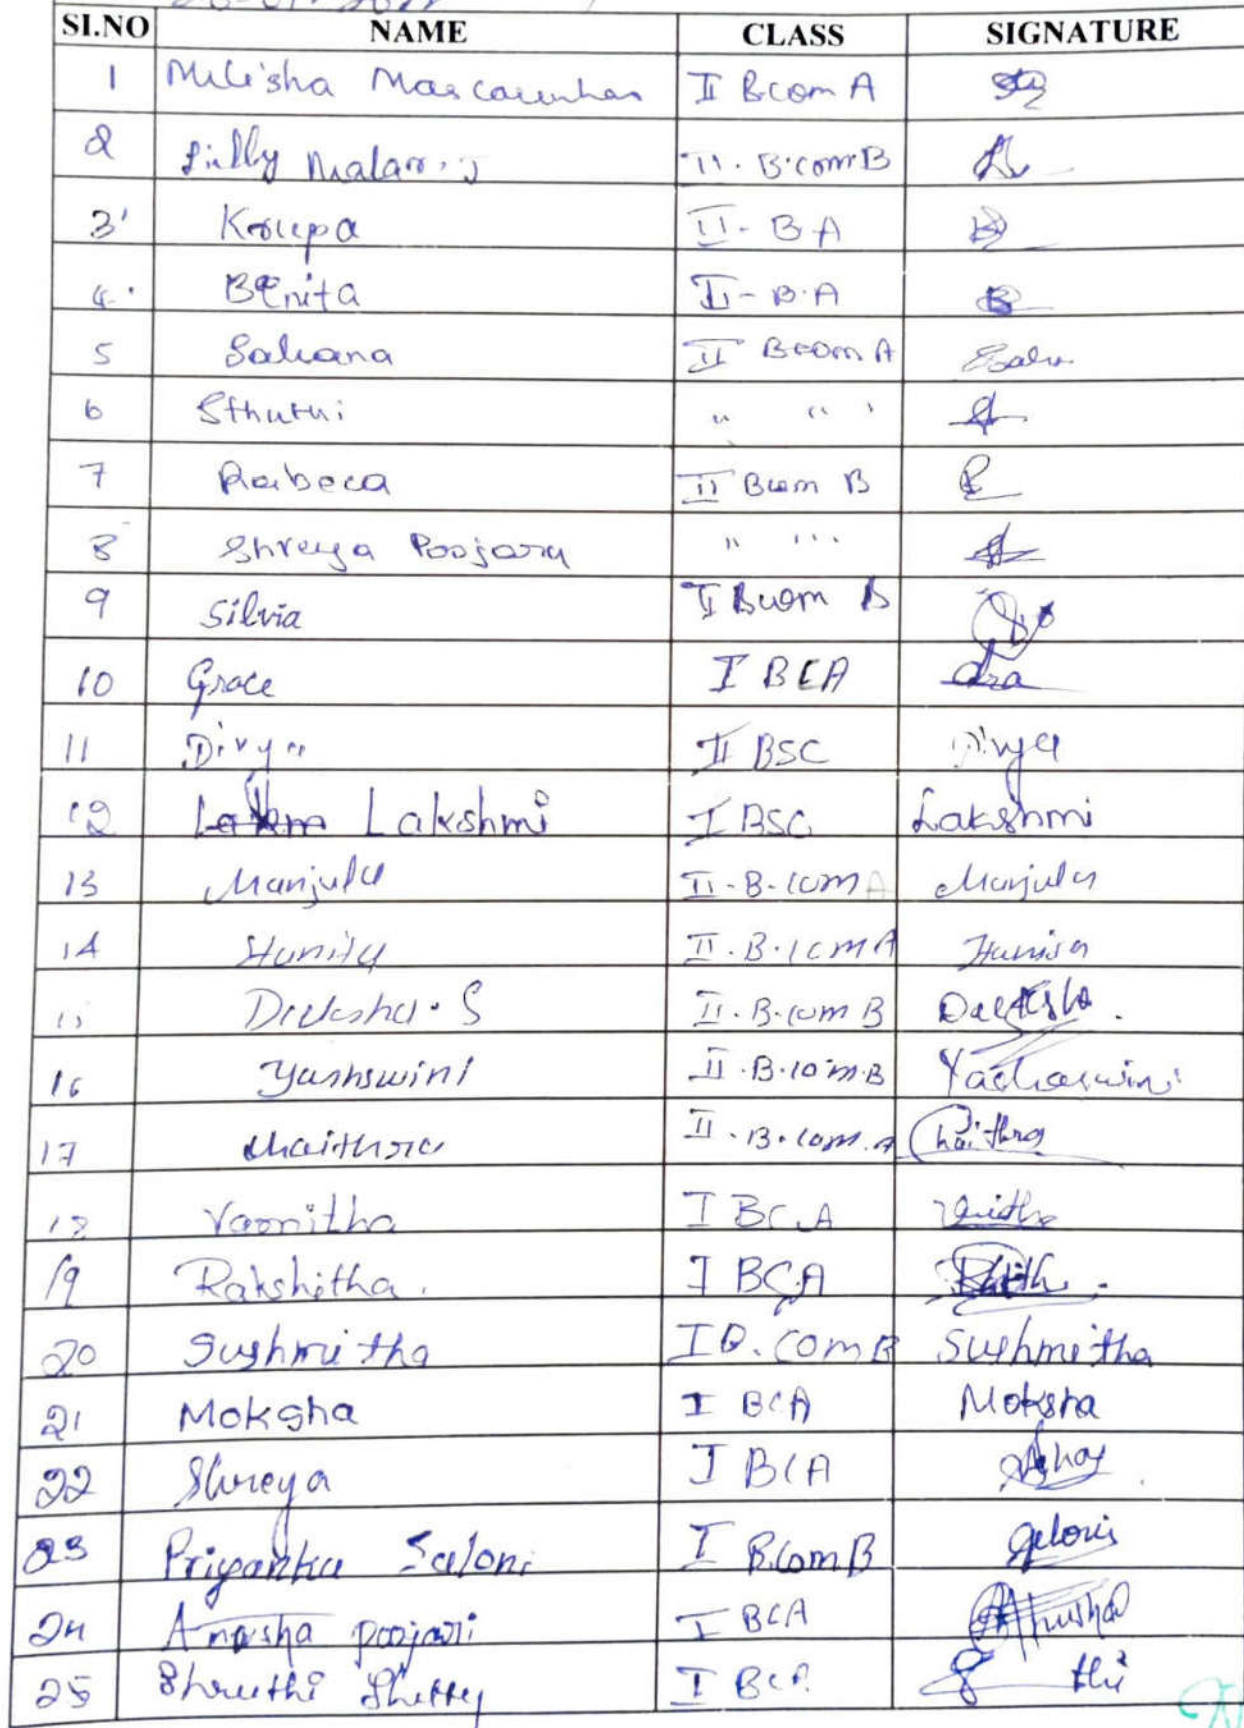 SI.NO NAME CLASS SIGNATURE
1 Melisha Mascarenhas II Bcom A
2 Lilly Malar. J II. B.com B
3' Krupa II- BA
4. Benita II- B.A
5 Sahana II Bcom A Saha
6 Sthuthi " " '
7 Rabeca II Bcom B
8 Shreya Poojary " "
9 Silvia II Bcom B
10 Grace I BCA Gra
11 Divya II BSC Divya
12 Lakshmi I BSC Lakshmi
13 Manjula II-B-com A Manjula
14 II.B.com A
15 Deeksha.S II.B.com B Deeksha.
16 Yashswini II.B.com.B Yashaswini
17 Chaithra II.B.com.A Chaithra
18 Vannitha I BCA
19 Rakshitha. I BCA
20 Sushmitha I B.com B Sushmitha
21 Moksha I BCA Moksha
22 Shreya I BCA
23 Priyanka Saloni I B.com B
24 Anusha poojari I BCA
25 Shruthi Shetty I BCA thi